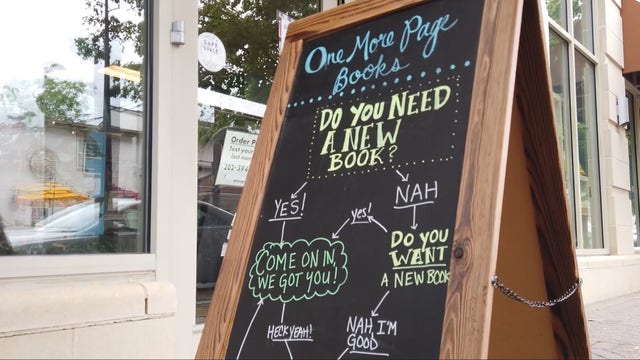 One More Page
Books
DO YOU NEED
A NEW
BOOK?
YES!
yes!
NAH
COME ON IN,
WE GOT YOU!
DO YOU
WANT
A NEW BOOK
HECK YEAH!
NAH, I'M
GOOD
SAFE
SPACE
Order
Text your
last nam